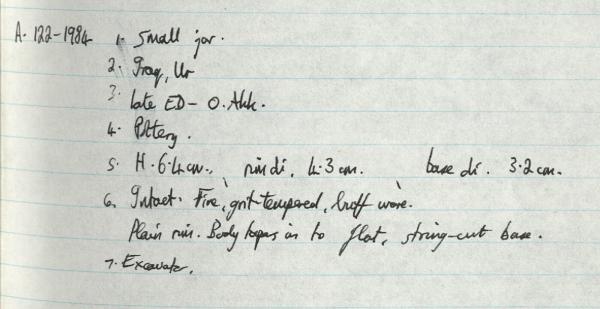 A. 122-1984 1. Small jar.
2. Iraq, Ur
3. late ED - O. Akk.
4. Pottery.
5. H. 6.4cm., rim di, 4.3 cm. base di. 3.2 cm.
6. Intact. Fine, grit-tempered, buff ware.
Plain rim. Body tapers in to flat, string-cut base.
7. Excavator.